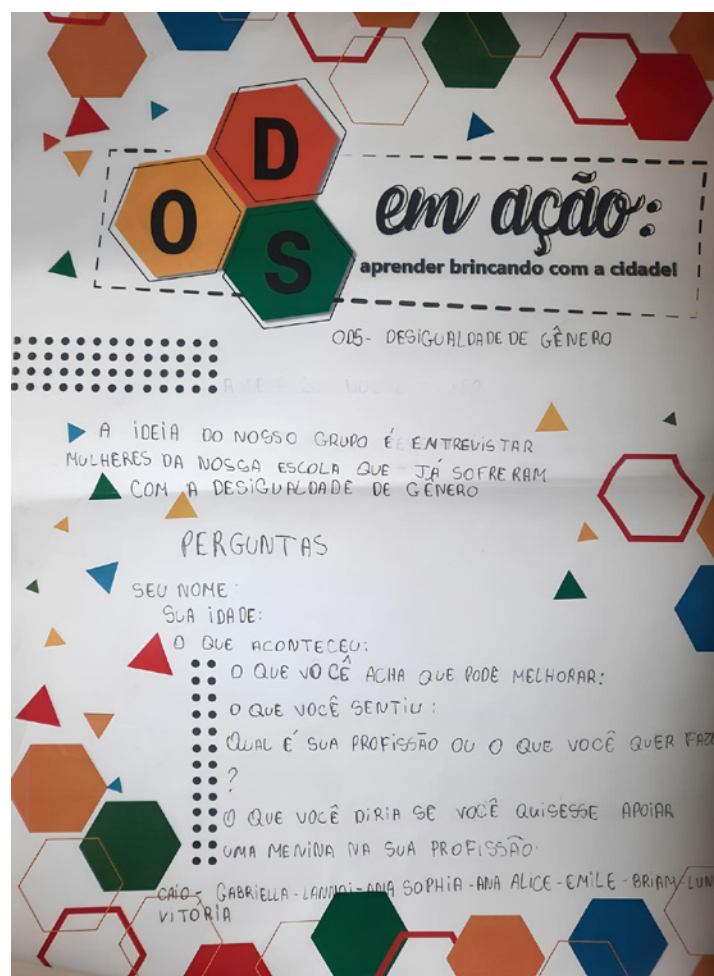 ODS
em ação:
aprender brincando com a cidade!
ODS- DESIGUALDADE DE GÊNERO
A IDEIA DO NOSSO GRUPO É ENTREVISTAR
MULHERES DA NOSSA ESCOLA QUE JÁ SOFRERAM
COM A DESIGUALDADE DE GÊNERO
PERGUNTAS
SEU NOME:
SUA IDADE:
O QUE ACONTECEU:
O QUE VOCÊ ACHA QUE PODE MELHORAR:
O QUE VOCÊ SENTIU:
QUAL É SUA PROFISSÃO OU O QUE VOCÊ QUER
?
O QUE VOCÊ DIRIA SE VOCÊ QUISESSE APOIAR
UMA MENINA NA SUA PROFISSÃO.
CAIO - GABRIELLA - ANA SOPHIA - ANA ALICE - EMILE - BRIAM
VITORIA